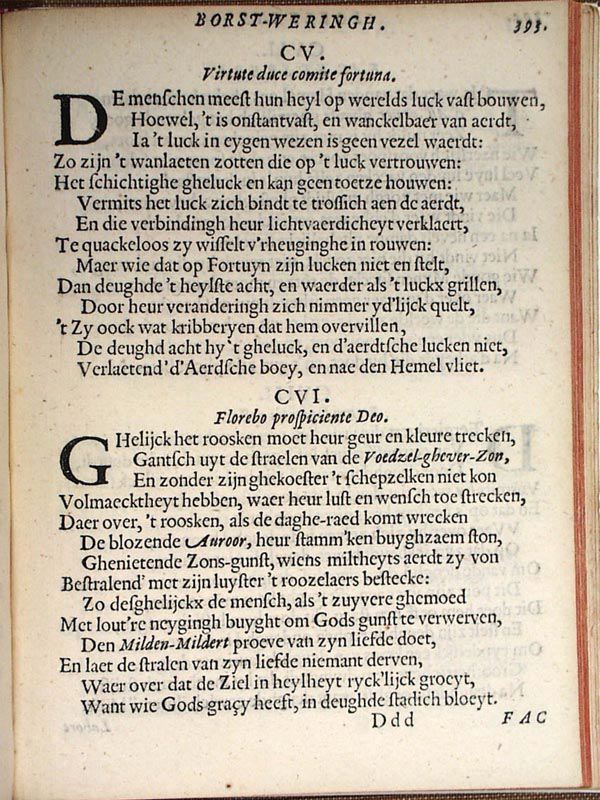 BORST-WERINGH. 393.
CV.
Virtute duce comite fortuna.
DE menschen meest hun heyl op werelds luck vast bouwen,
Hoewel, 't is onstantvast, en wanckelbaer van aerdt,
Ia 't luck in eygen wezen is geen vezel waerdt:
Zo zijn 't wanlaeten zotten die op 't luck vertrouwen:
Het schichtighe gheluck en kan geen toetze houwen:
Vermits het luck zich bindt te trossich aen de aerdt,
En die verbindingh heur lichtvaerdicheyt verklaert,
Te quackeloos zy wisselt v'rheuginghe in rouwen:
Maer wie dat op Fortuyn zijn lucken niet en stelt,
Dan deughde 't heylste acht, en waerder als 't luckx grillen,
Door heur veranderingh zich nimmer yd'lijck quelt,
't Zy oock wat kribberyen dat hem overvillen,
De deughd acht hy 't gheluck, en d'aerdtsche lucken niet,
Verlaetend' d'Aerdsche boey, en nae den Hemel vliet.
CVI.
Florebo prospiciente Deo.
GHelijck het roosken moet heur geur en kleure trecken,
Gantsch uyt de straelen van de Voedzel-ghever-Zon,
En zonder zijn ghekoester 't schepzelken niet kon
Volmaecktheyt hebben, waer heur lust en wensch toe strecken,
Daer over, 't roosken, als de daghe-raed komt wrecken
De blozende Auroor, heur stamm'ken buyghzaem ston,
Ghenietende Zons-gunst, wiens miltheyts aerdt zy von
Bestralend' met zijn luyster 't roozelaers bestecke:
Zo desghelijckx de mensch, als 't zuyvere ghemoed
Met lout're neygingh buyght om Gods gunst te verwerven,
Den Milden-Mildert proeve van zyn liefde doet,
En laet de stralen van zyn liefde niemant derven,
Waer over dat de Ziel in heylheyt ryck'lijck groeyt,
Want wie Gods graçy heeft, in deughde stadich bloeyt.
Ddd FAC